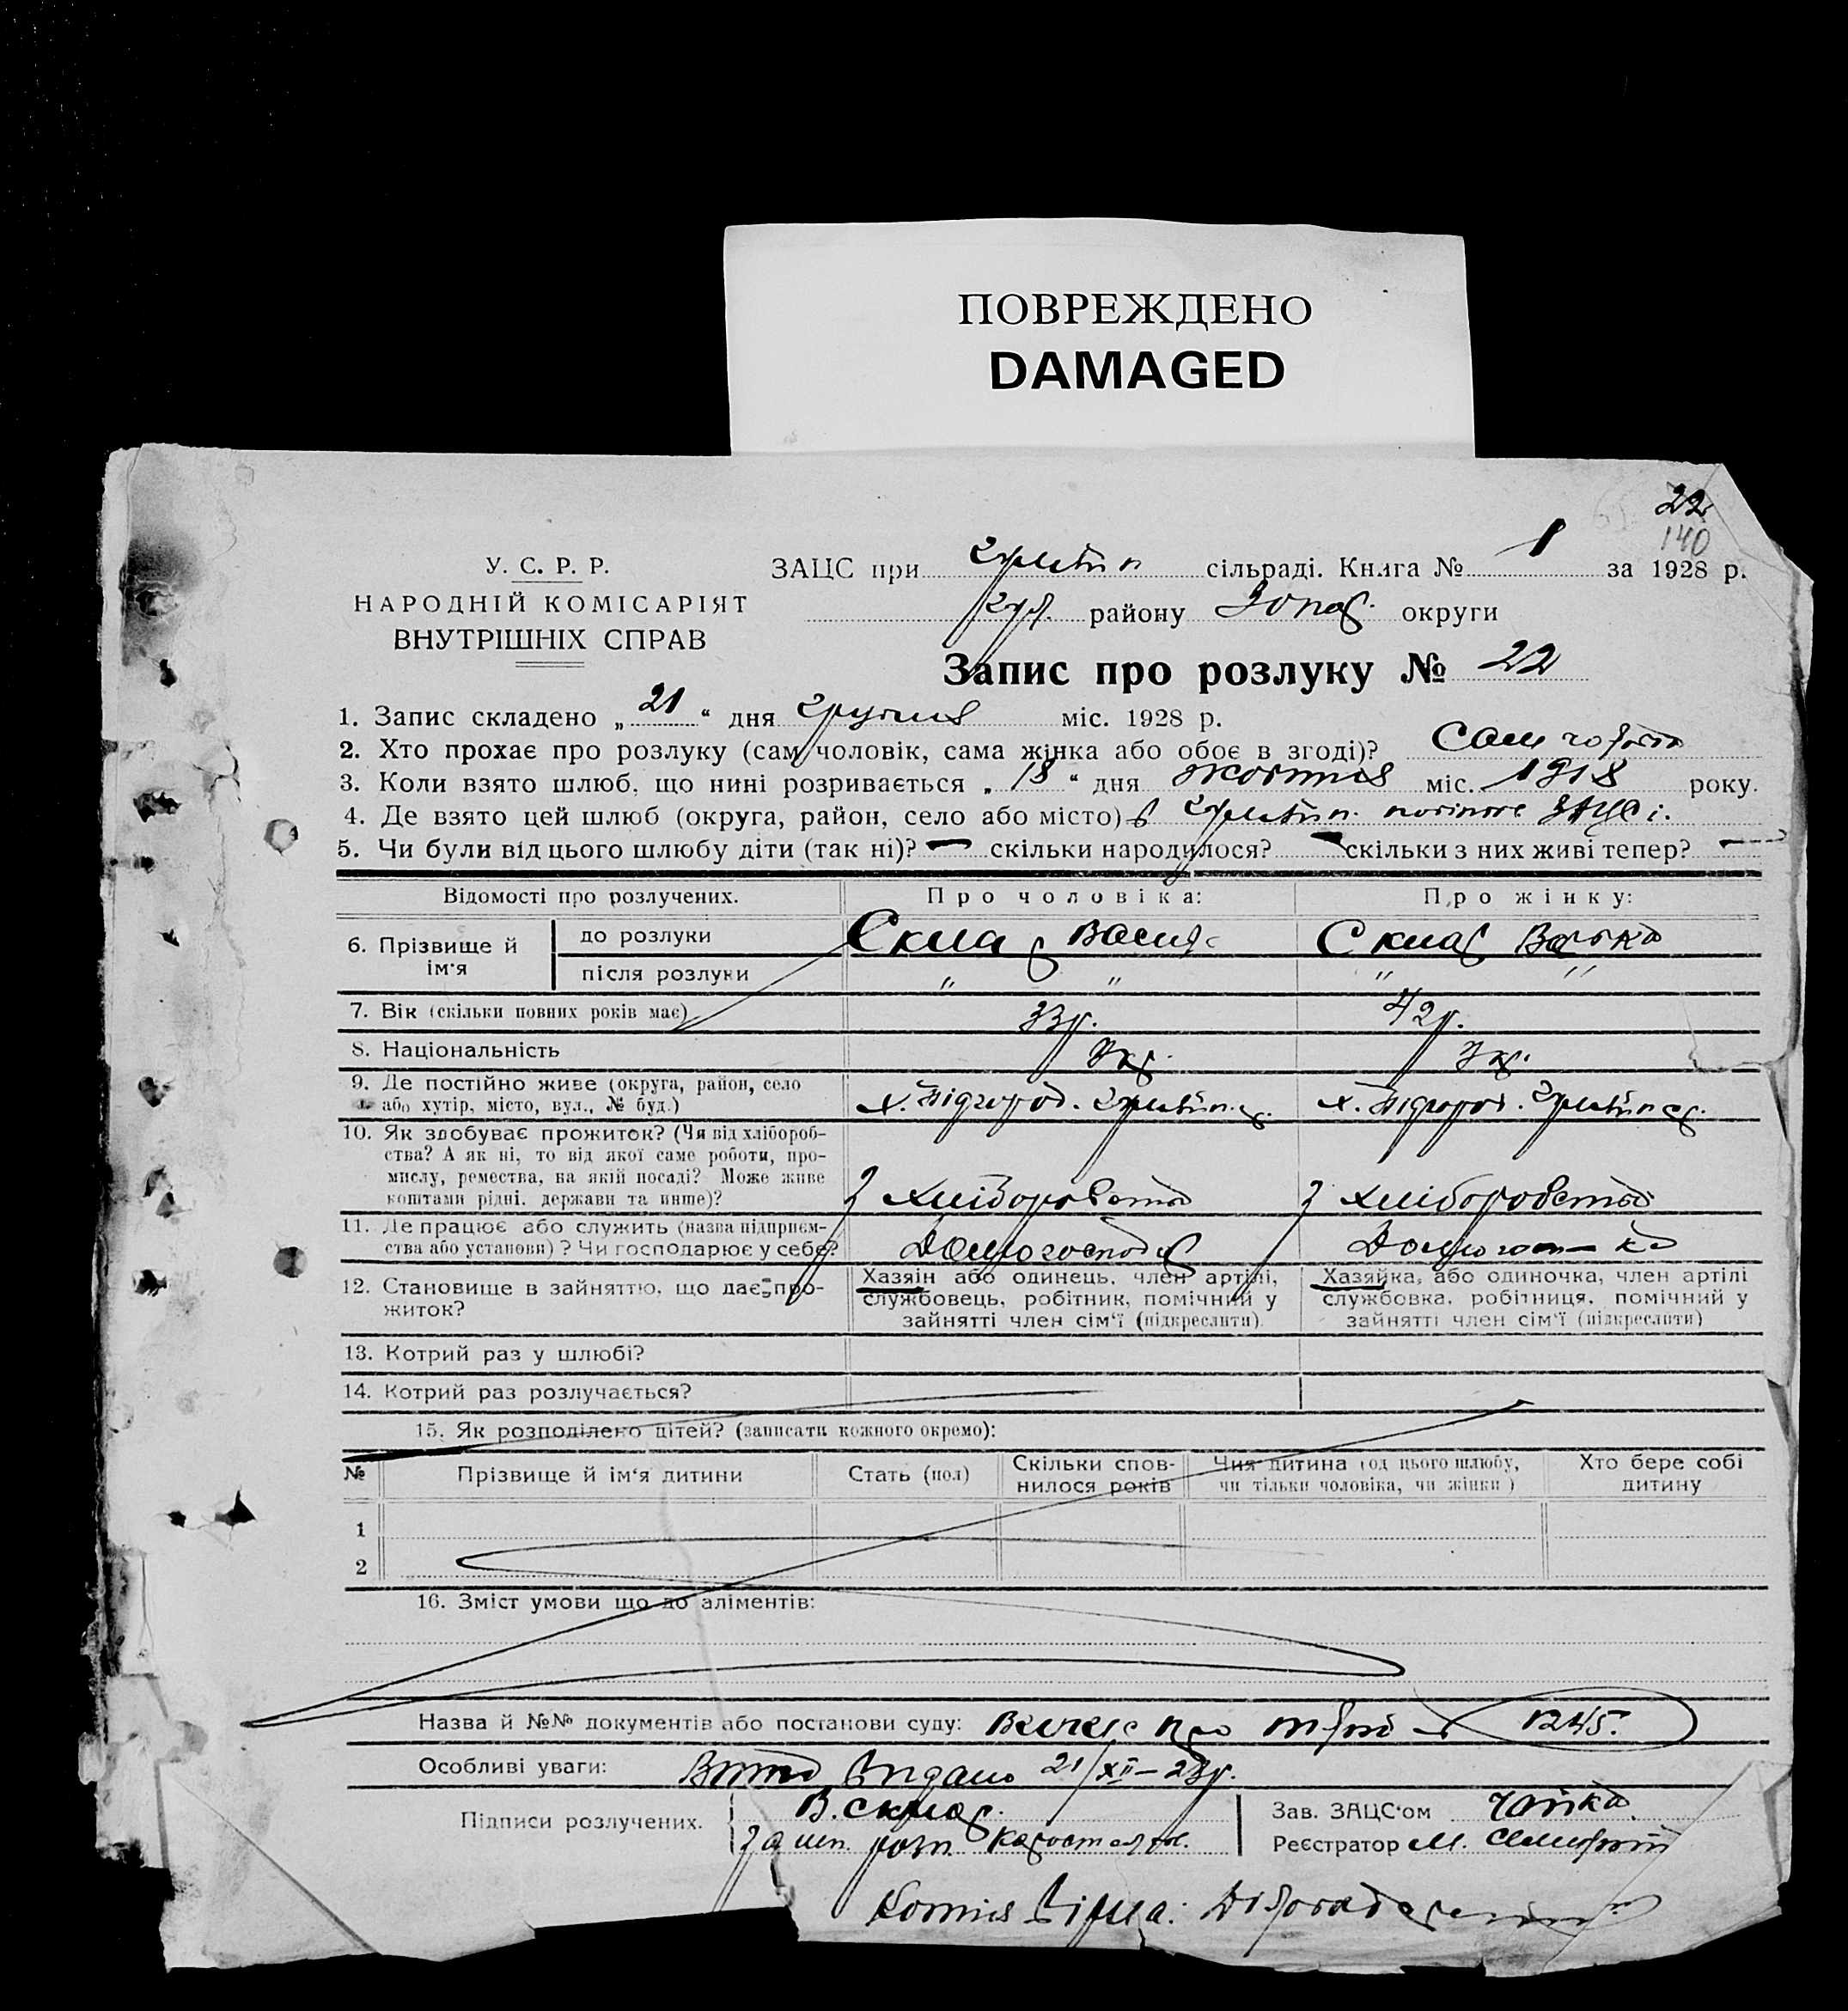 ПОВРЕЖДЕНО
DAMAGED
22
140
У. С. Р. Р.
НАРОДНІЙ КОМІСАРІЯТ
ВНУТРІШНІХ СПРАВ
ЗАЦС при сільраді. Книга № 1 за 1928 р.
району округи
Запис про розлуку № 22
1. Запис складено „ 21 “ дня грудня міс. 1928 р.
2. Хто прохає про розлуку (сам чоловік, сама жінка або обоє в згоді)? Сам
3. Коли взято шлюб, що нині розривається „ 18 “ дня жовтня міс. 1918 року.
4. Де взято цей шлюб (округа, район, село або місто) в ЗАЦСі.
5. Чи були від цього шлюбу діти (так ні)? — скільки народилося? — скільки з них живі тепер? —
Відомості про розлучених. Про чоловіка: Про жінку:
6. Прізвище й ім'я до розлуки Скляр Василь Скляр Варька
після розлуки " " " "
7. Вік (скільки повних років має) 33р. 42р.
8. Національність Укр. Укр.
9. Де постійно живе (округа, район, село або хутір, місто, вул., № буд.) х. Підгород. х. Підгород.
10. Як здобуває прожиток? (Чи від хлібороб-
ства? А як ні, то від якої саме роботи, про-
мислу, ремества, на якій посаді? Може живе
коштами рідні, держави та инше)? З хліборобства З хліборобства
11. Де працює або служить (назва підприєм-
ства або установи)? Чи господарює у себе? Домогосподар
12. Становище в зайняттю, що дає про-
житок?
Хазяін або одинець, член артілі,
службовець, робітник, помічний у
зайнятті член сім'ї (підкреслити).
Хазяйка, або одиночка, член артілі
службовка, робітниця, помічний у
зайнятті член сім'ї (підкреслити)
13. Котрий раз у шлюбі?
14. Котрий раз розлучається?
15. Як розподілено дітей? (записати кожного окремо):
№ Прізвище й ім'я дитини Стать (пол) Скільки спов-
нилося років Чия дитина (од цього шлюбу,
чи тільки чоловіка, чи жінки) Хто бере собі
дитину
1
2
16. Зміст умови що до аліментів:
Назва й №№ документів або постанови суду: про 1245.
Особливі уваги: видано 21/XII–28р.
Підписи розлучених. В. Скляр. Зав. ЗАЦС'ом Чайка
Реєстратор М.
Копія